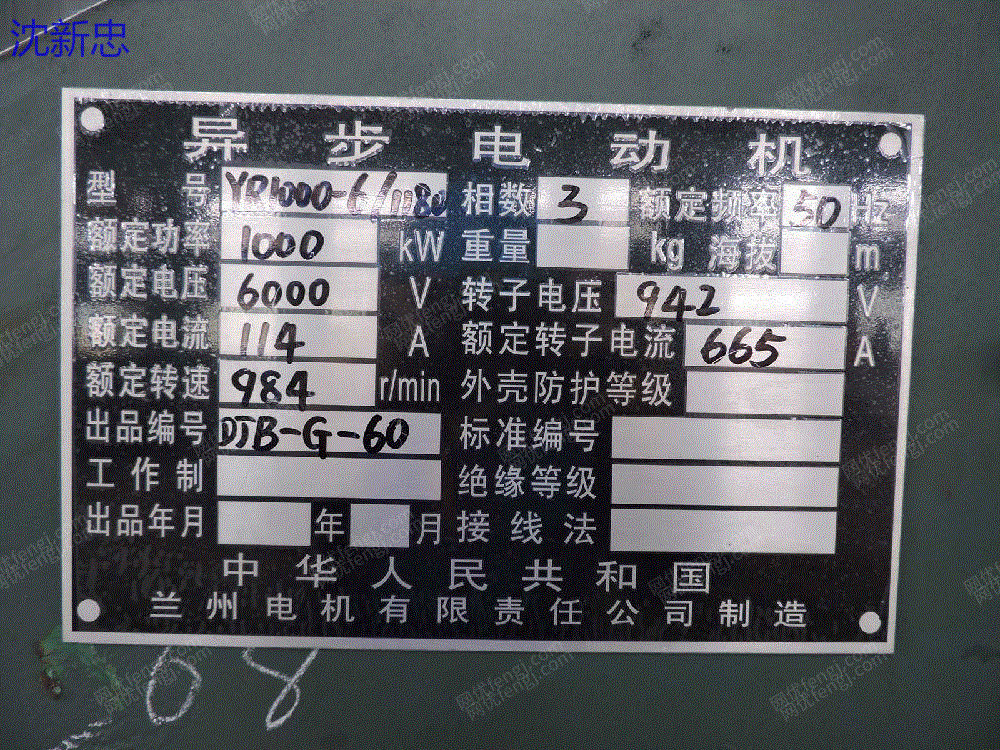 沈新忠
异步电动机
型号 YR1000-6/1180 相数 3 额定频率 50 Hz
额定功率 1000 kW 重量 kg 海拔 m
额定电压 6000 V 转子电压 942 V
额定电流 114 A 额定转子电流 665 A
额定转速 984 r/min 外壳防护等级
出品编号 DJB-G-60 标准编号
工作制 绝缘等级
出品年月 年 月 接线法
中华人民共和国
兰州电机有限责任公司制造
08